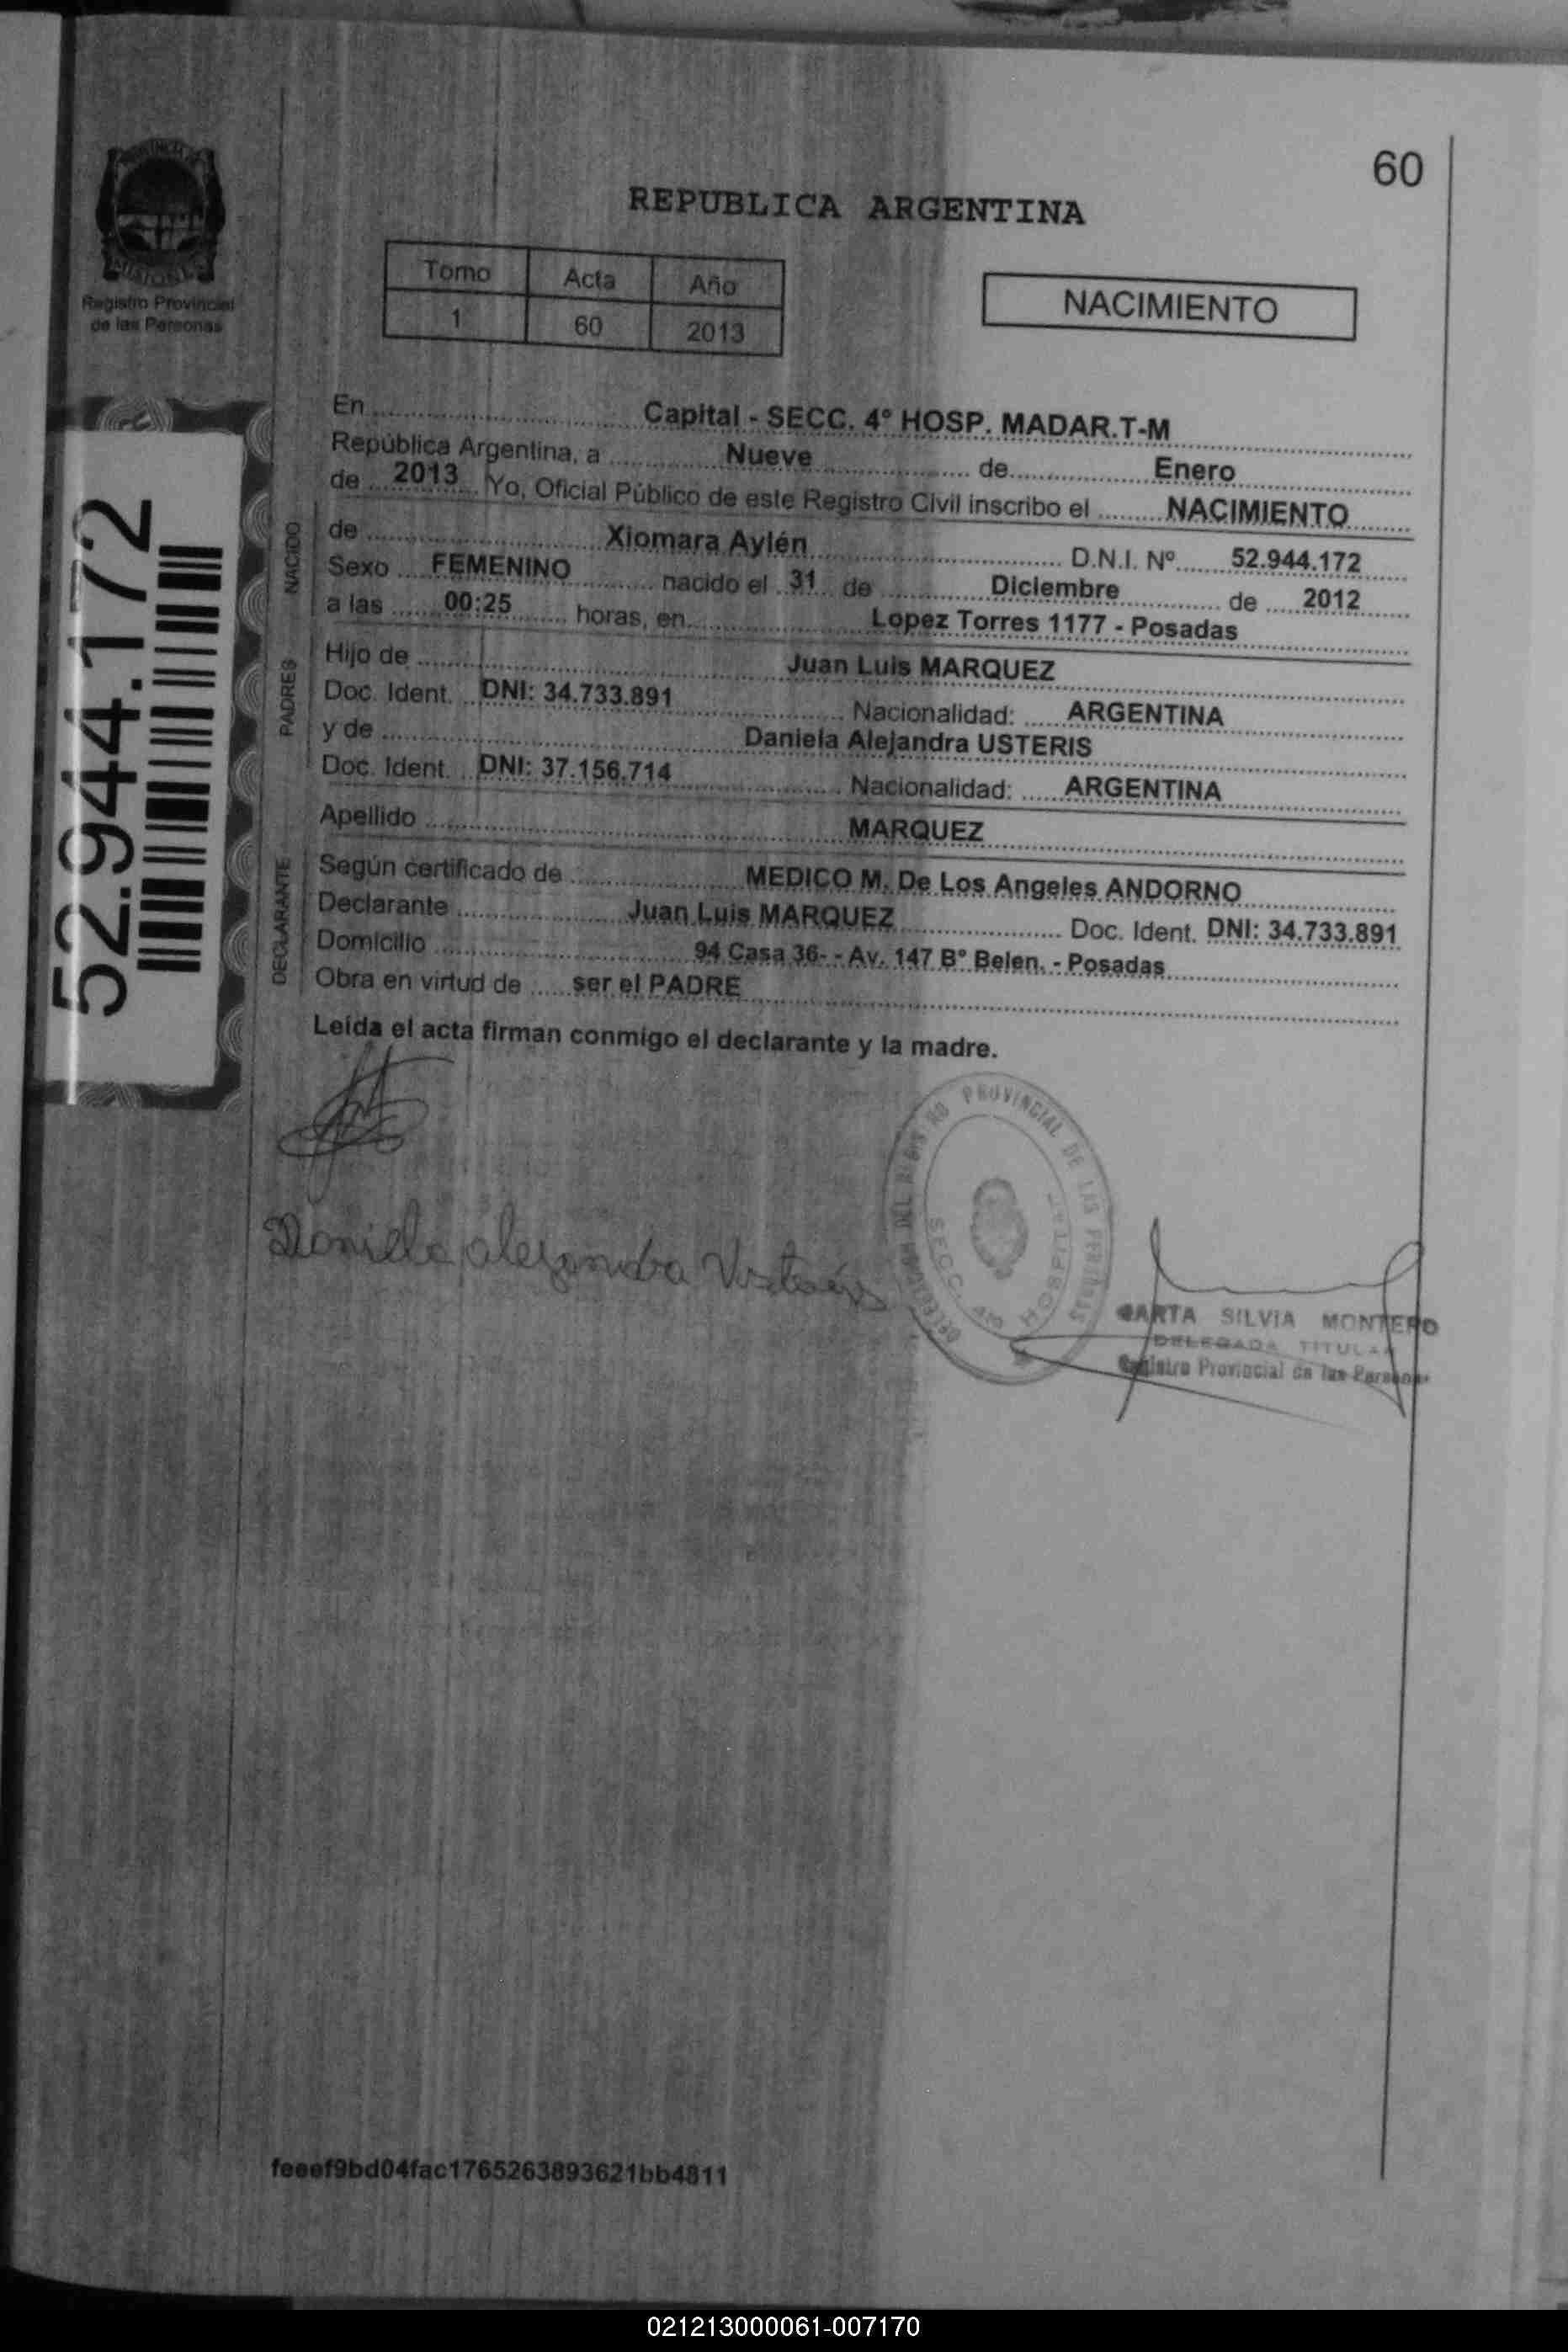 60
REPUBLICA ARGENTINA
Registro Provincial
de las Personas
Tomo Acta Año
1 60 2013
NACIMIENTO
52.944.172
En Capital - SECC. 4º HOSP. MADAR.T-M
República Argentina, a Nueve de Enero
de 2013 Yo, Oficial Público de este Registro Civil inscribo el NACIMIENTO
NACIDO
de Xiomara Aylén D.N.I. Nº 52.944.172
Sexo FEMENINO nacido el 31 de Diciembre de 2012
a las 00:25 horas, en Lopez Torres 1177 - Posadas
PADRES
Hijo de Juan Luis MARQUEZ
Doc. Ident. DNI: 34.733.891 Nacionalidad: ARGENTINA
y de Daniela Alejandra USTERIS
Doc. Ident. DNI: 37.156.714 Nacionalidad: ARGENTINA
Apellido MARQUEZ
DECLARANTE
Según certificado de MEDICO M. De Los Angeles ANDORNO
Declarante Juan Luis MARQUEZ Doc. Ident. DNI: 34.733.891
Domicilio 94 Casa 36- - Av. 147 Bº Belen. - Posadas
Obra en virtud de ser el PADRE
Leída el acta firman conmigo el declarante y la madre.
PROVINCIAL DE LAS PERSONAS
SECC. 4ta HOSPITAL
Alejandra
SILVIA MONTERO
DELEGADA TITULAR
Registro Provincial de las Personas
feeef9bd04fac1765263893621bb4811
021213000061-007170